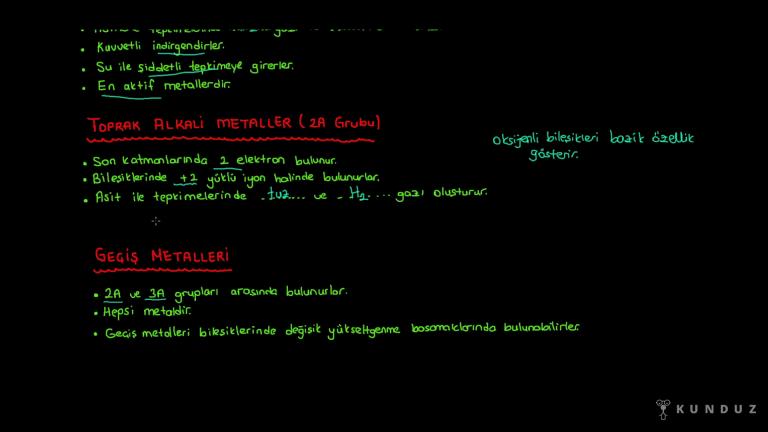 • Kuvvetli indirgendirler.
• Su ile şiddetli tepkimeye girerler.
• En aktif metallerdir.
TOPRAK ALKALİ METALLER (2A Grubu)
oksijenli bileşikleri bazik özellik
gösterir.
• Son katmanlarında 2 elektron bulunur.
• Bileşiklerinde +2 yüklü iyon halinde bulunurlar.
• Asit ile tepkimelerinde .tuz... ve . H₂.... gazı oluşturur.
GEÇİŞ METALLERİ
• 2A ve 3A grupları arasında bulunurlar.
• Hepsi metaldir.
• Geçiş metalleri bileşiklerinde değişik yükseltgenme basamaklarında bulunabilirler.
KUNDUZ